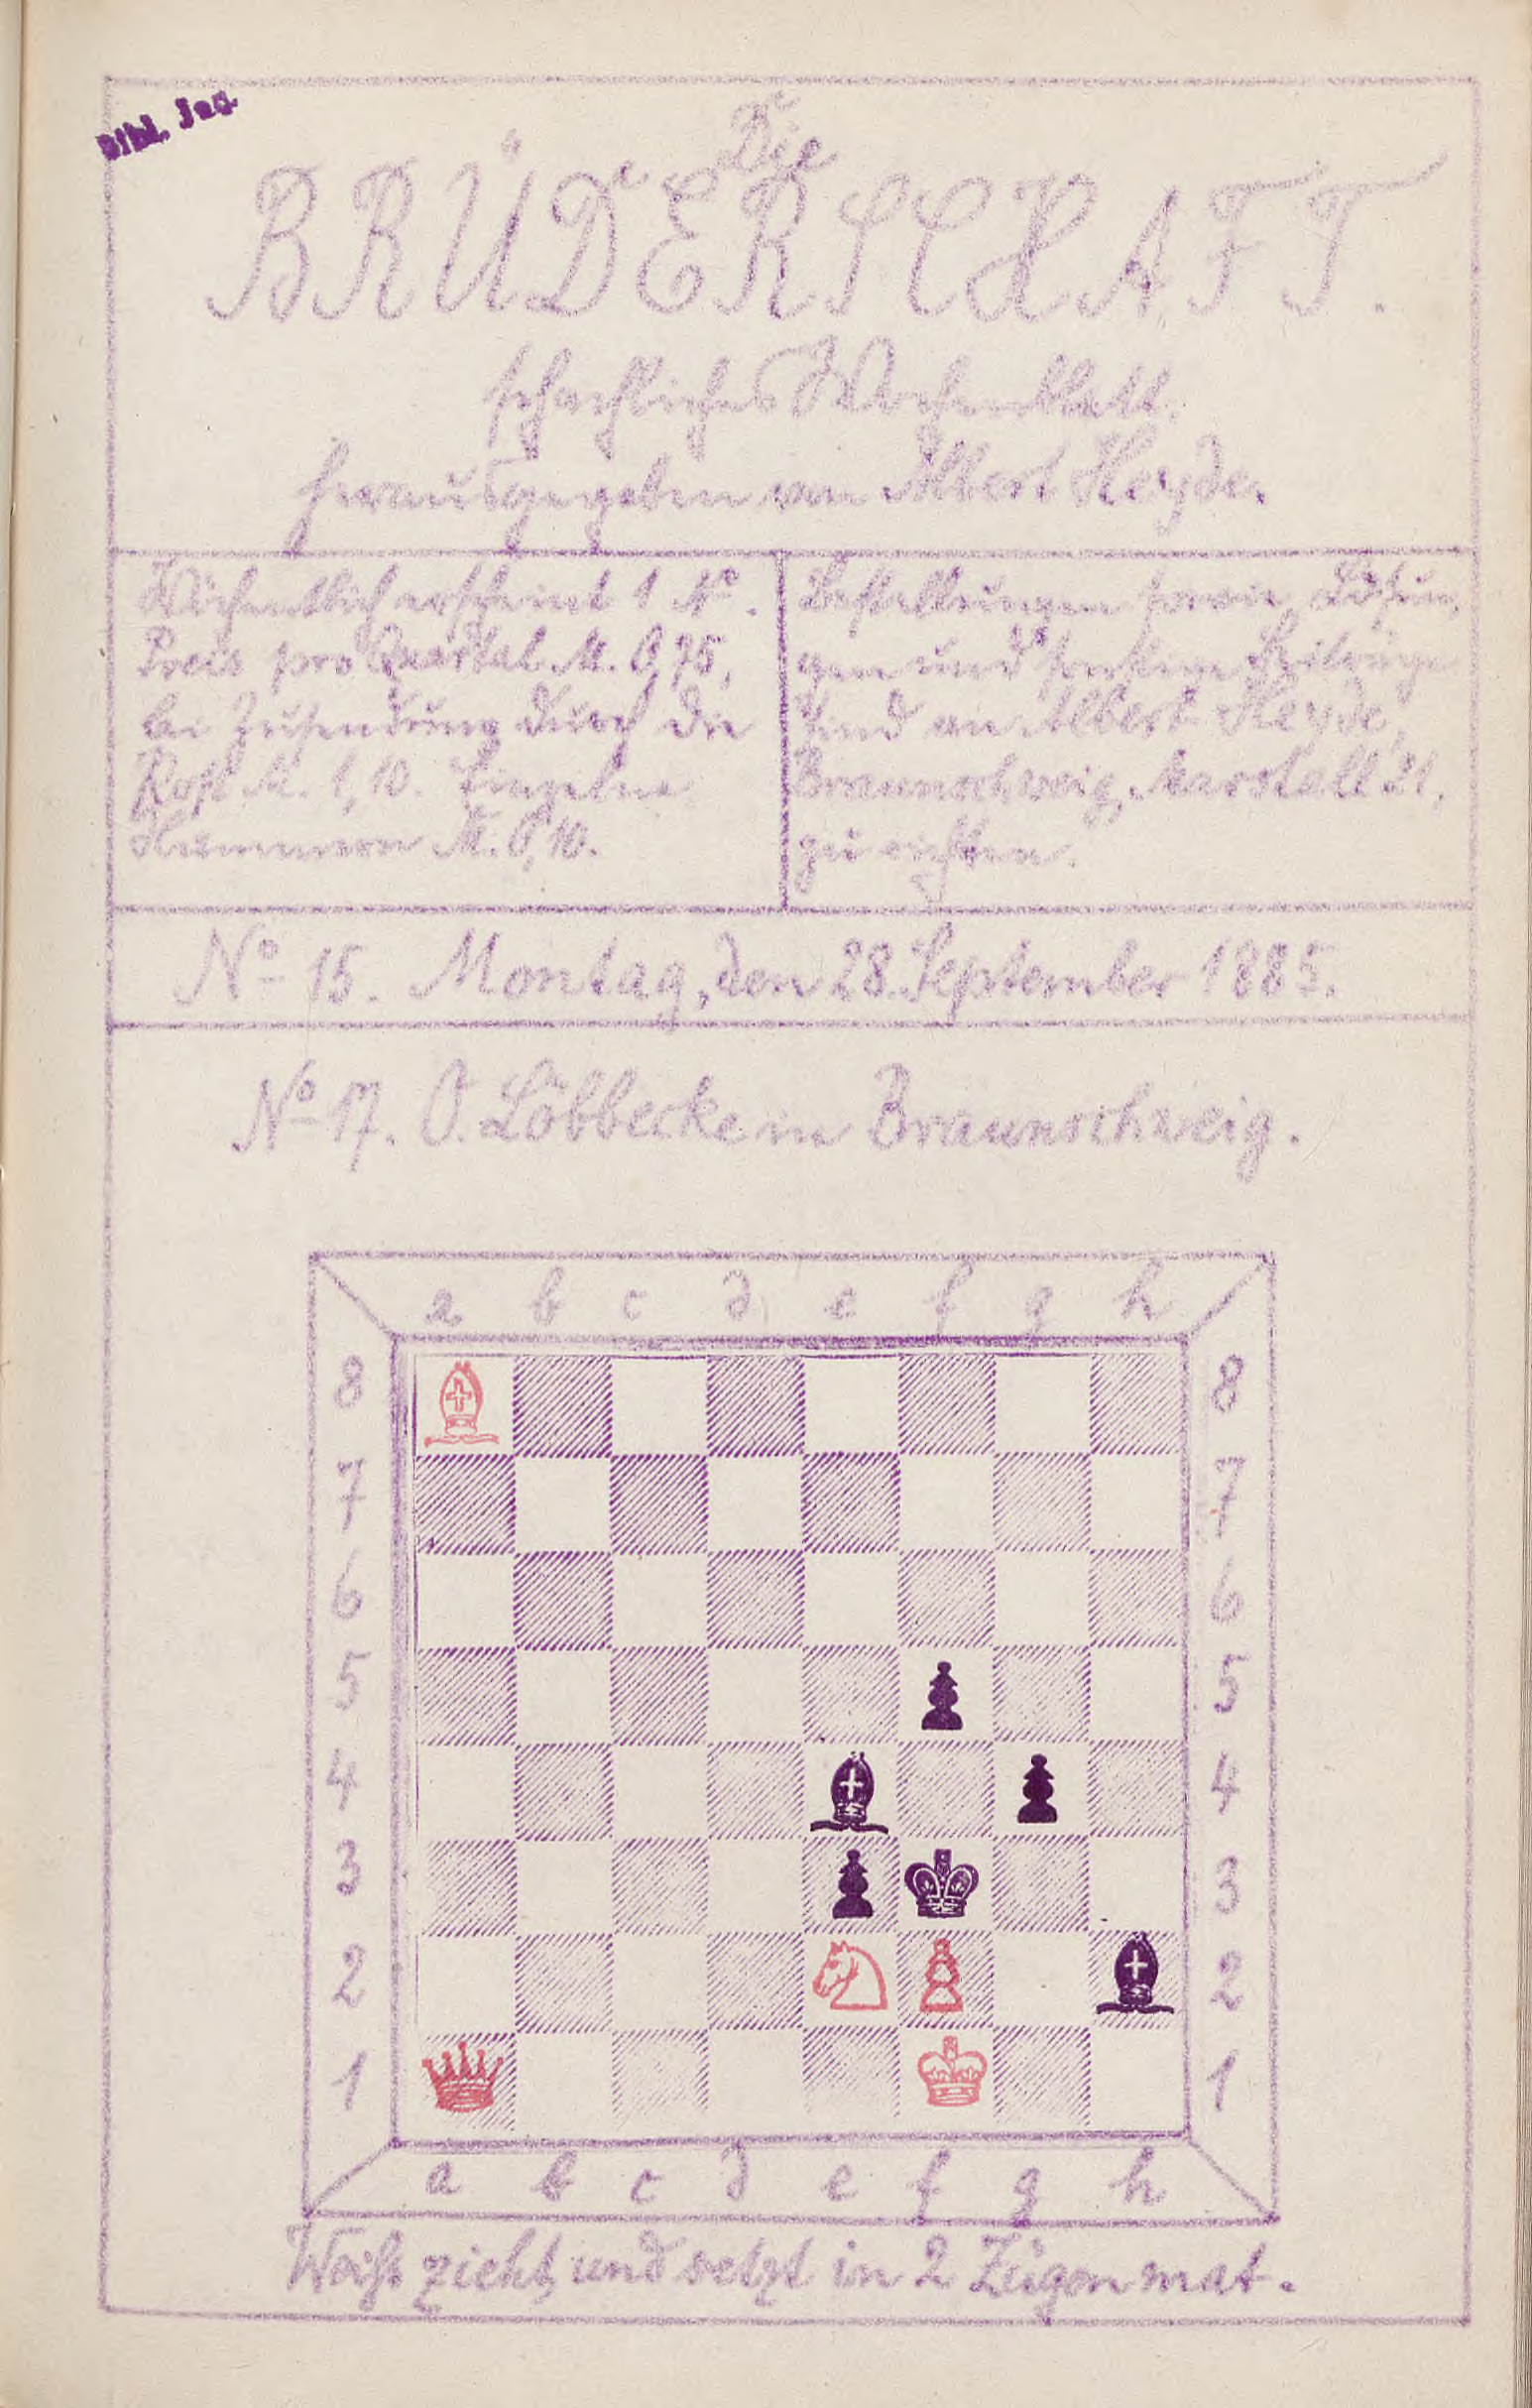 Bibl. Jag.
Die
BRÜDERSCHAFT.
schachliches Wochenblatt.
herausgegeben von Albert Heyde.
Wöchentlich erscheint 1 No.
Preis pro Quartal M. 0,75,
bei Zusendung durch die
Post M. 1,10. Einzelne
Nummern M. 0,10.
Bestellungen sowie Lösun-
gen und sonstige
sind an Albert Heyde,
Braunschweig, Marstall 21,
zu richten.
No 15. Montag, den 28. September 1885.
No 17. O. Löbbecke in Braunschweig.
a b c d e f g h
8 8
7 7
6 6
5 5
4 4
3 3
2 2
1 1
a b c d e f g h
Weiß zieht und setzt in 2 Zügen mat.